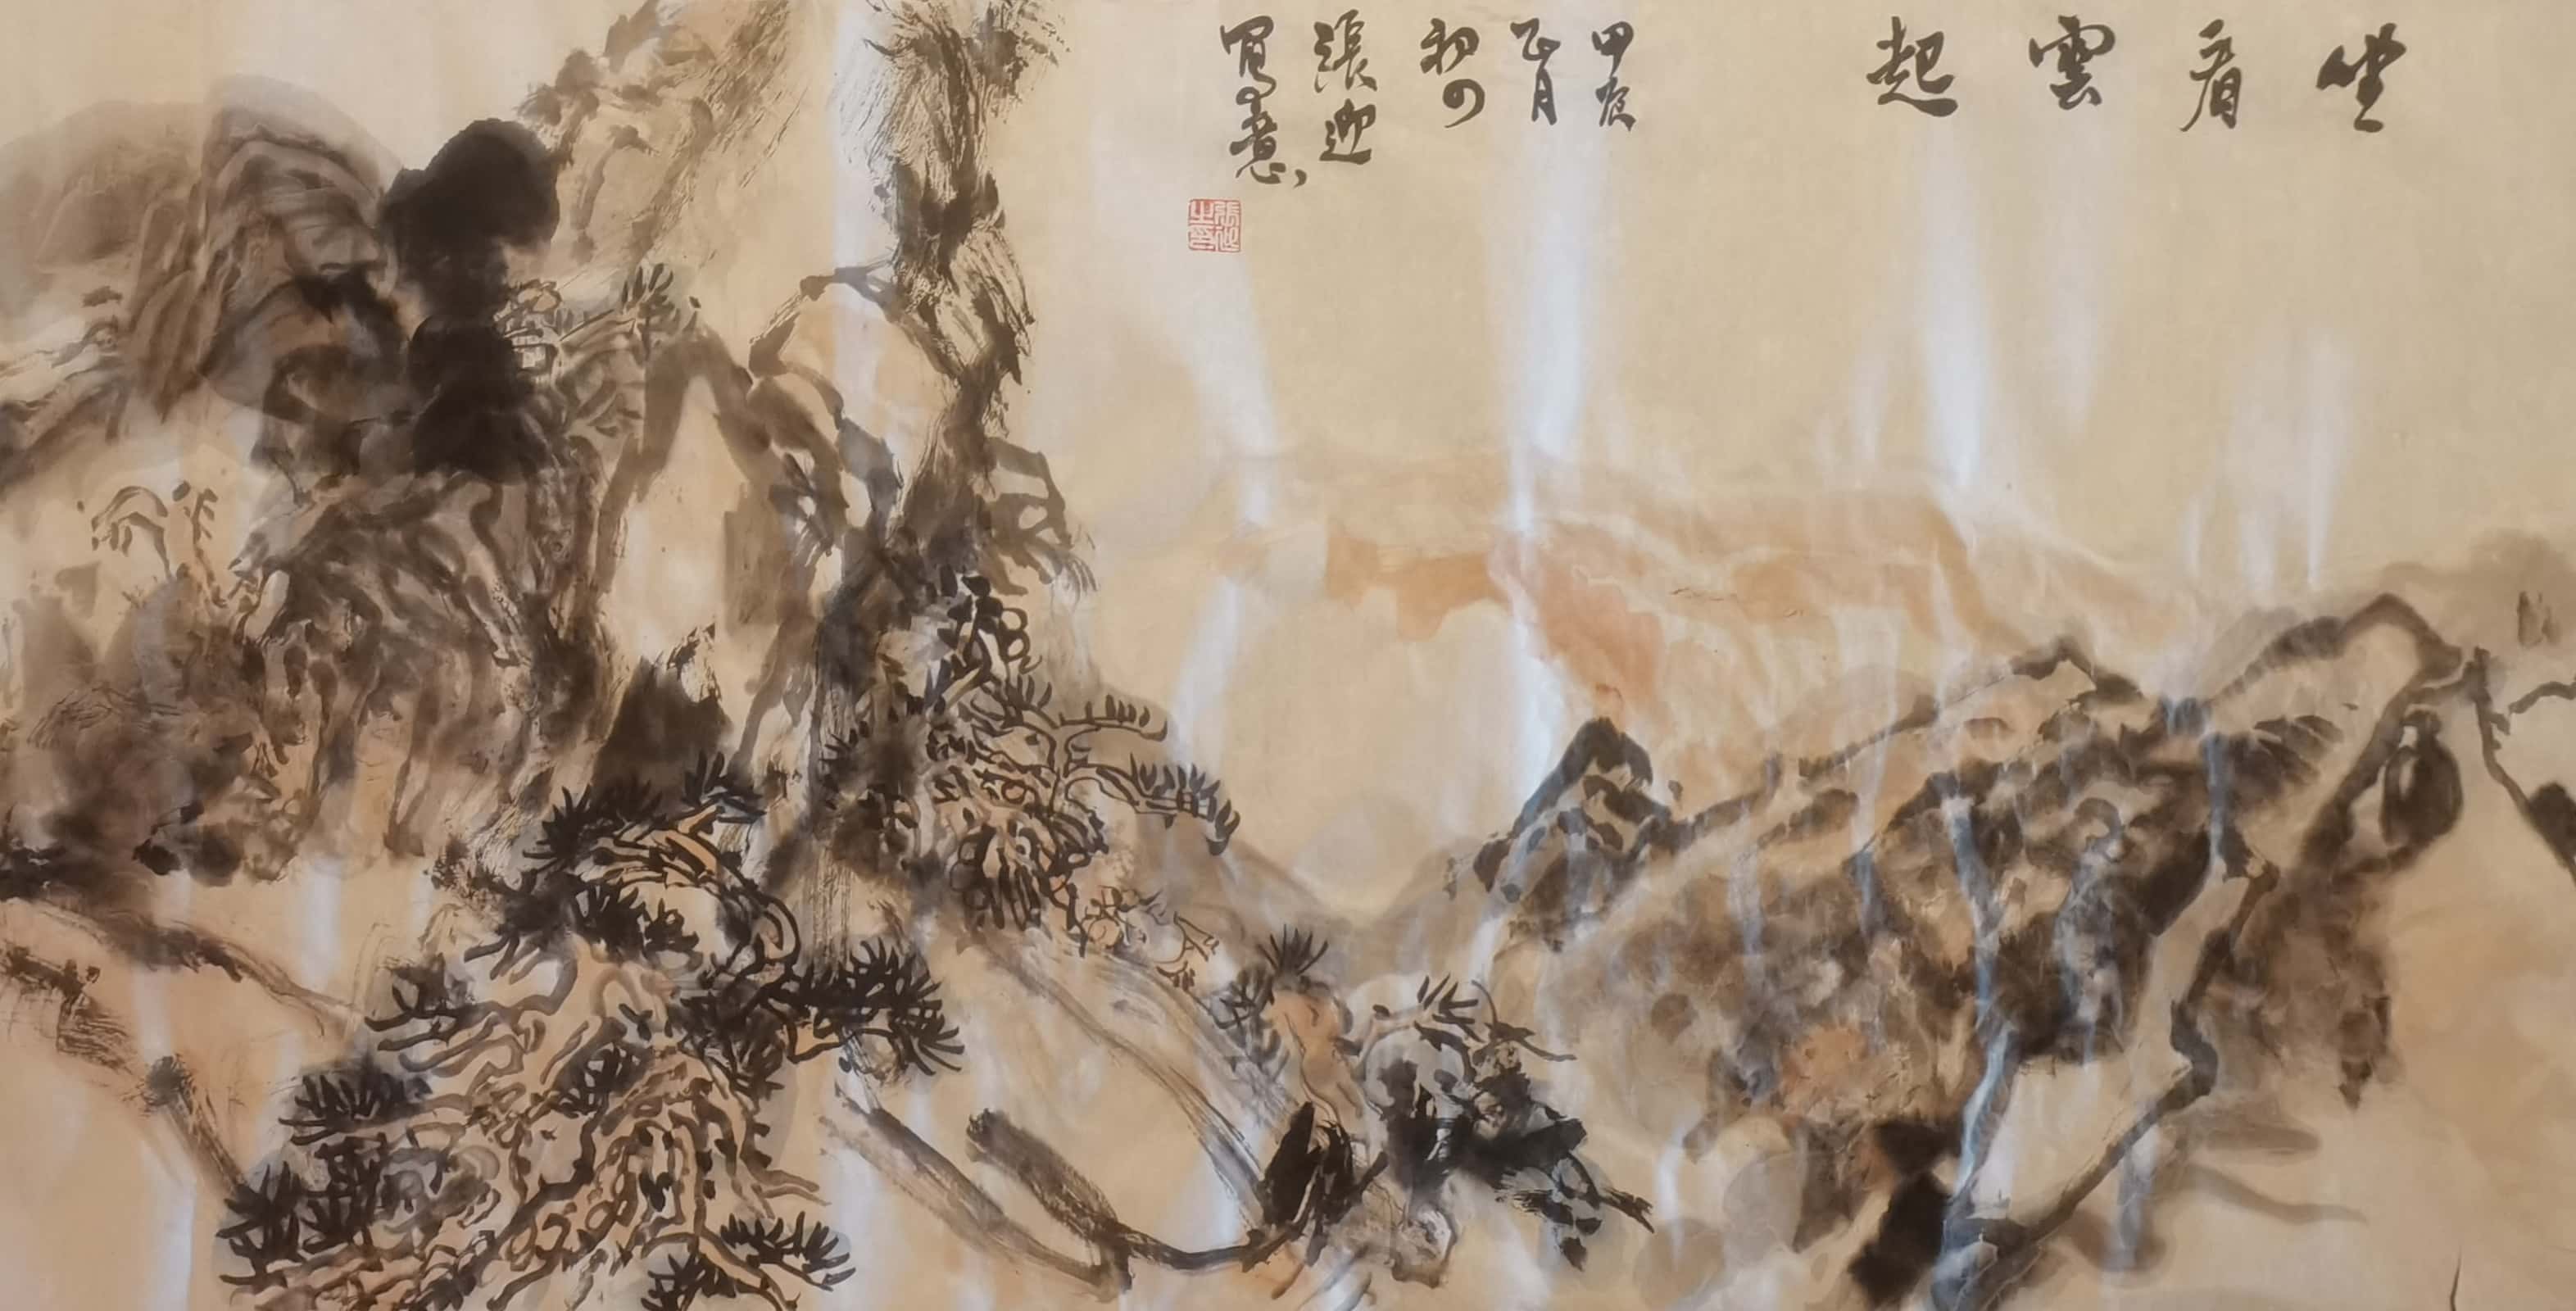 坐看雲起
甲辰
正月
初四
張迎
寫意
張迎之印